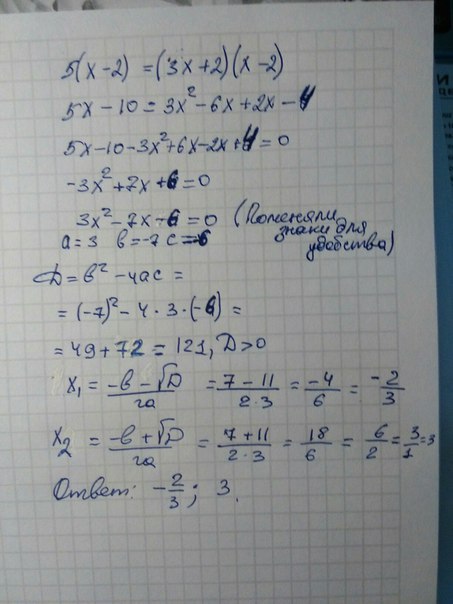 5(x-2) = (3x+2)(x-2)
5x-10 = 3x²-6x+2x-4
5x-10-3x²+6x-2x+4=0
-3x²+7x+6=0
3x²-7x-6=0 (Поменяли знаки для удобства)
a=3 b=-7 c=-6
D=b²-4ac =
= (-7)²-4·3·(-6) =
= 49+72=121, D>0
x₁ = (-b-√D)/2a = (7-11)/(2·3) = -4/6 = -2/3
x₂ = (-b+√D)/2a = (7+11)/(2·3) = 18/6 = 6/2 = 3/1 = 3
Ответ: -2/3; 3.